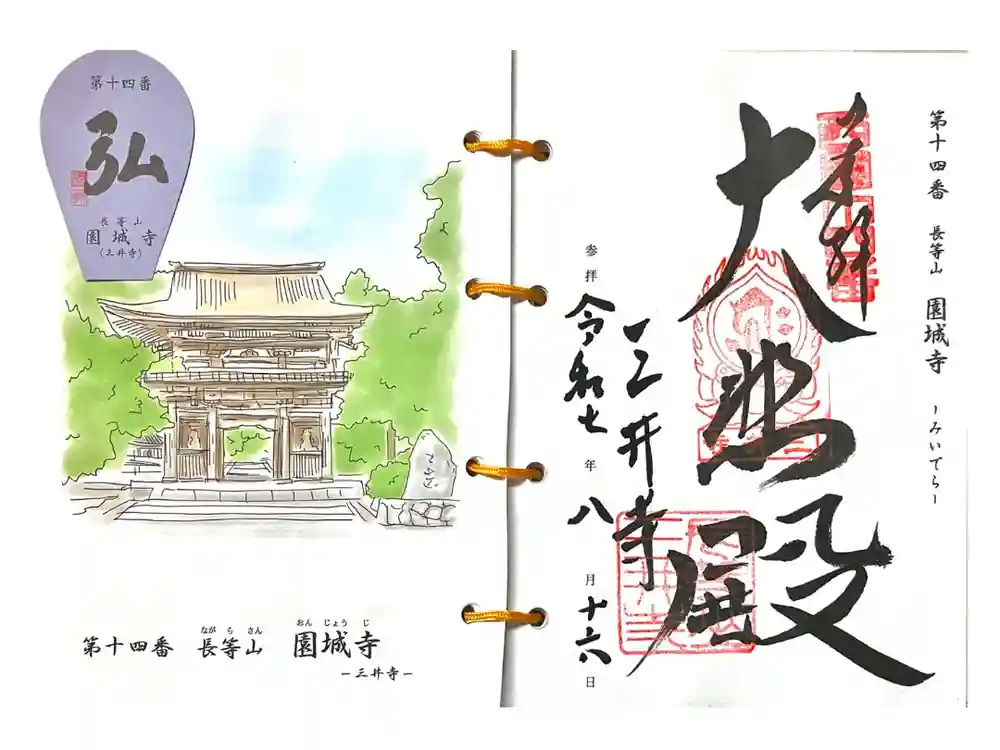 第十四番
弘
長等山
園城寺
(三井寺)
第十四番 長等山 園城寺
ながらさん おんじょうじ
-三井寺-
第十四番 長等山 園城寺 -みいでら-
奉拝
大悲殿
三井寺
参拝 令和七年八月十六日